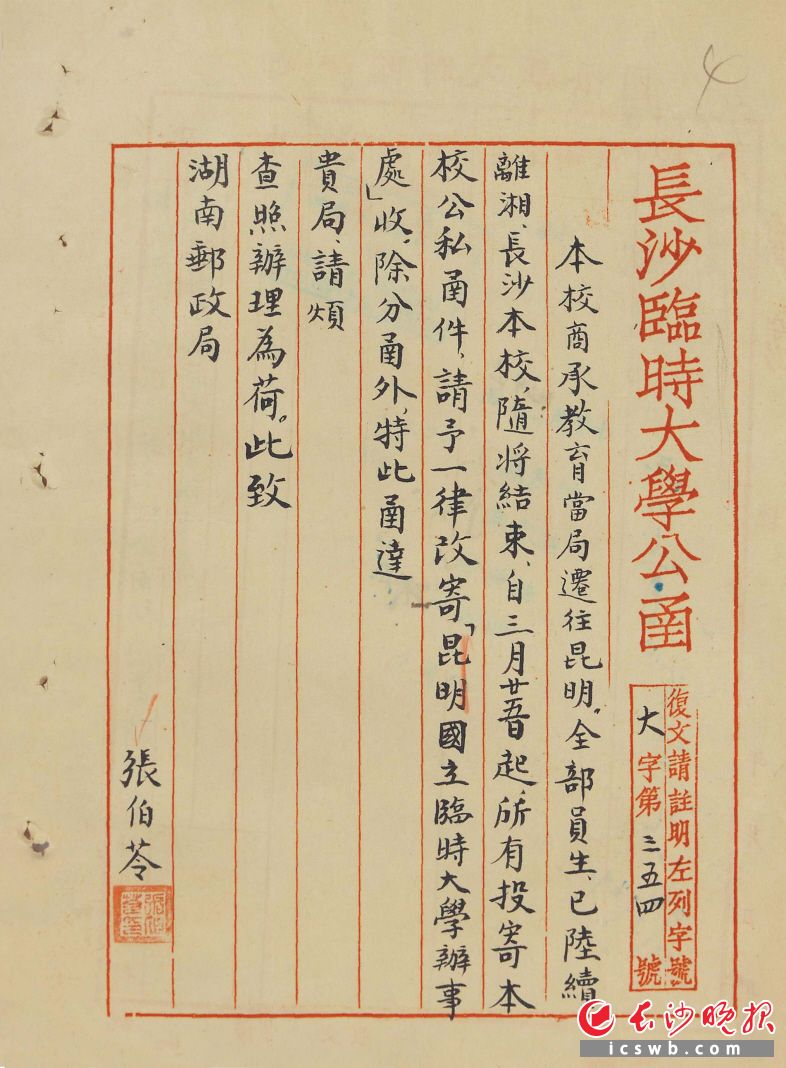 4
長沙臨時大學公函
復文請註明左列字號
大字第三五四號
本校商承教育當局遷往昆明。全部員生、已陸續
離湘、長沙本校、隨將結束、自三月廿五日起、所有投寄本
校公私函件、請予一律改寄「昆明國立臨時大學辦事
處」收、除分函外、特此函達
貴局、請煩
查照辦理為荷。此致
湖南郵政局
張伯苓
長沙晚报
icswb.com